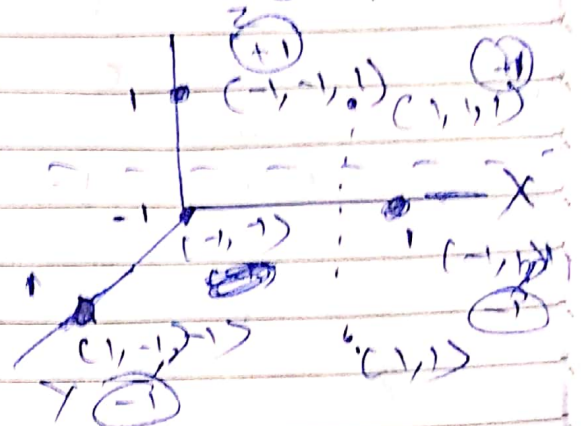 +1
+1
1 (-1,-1,1) (1,1,1)
-1 X
(-1,-1) 1
1 (-1,1,
-1
(1,-1,-1) (1,1)
Y -1